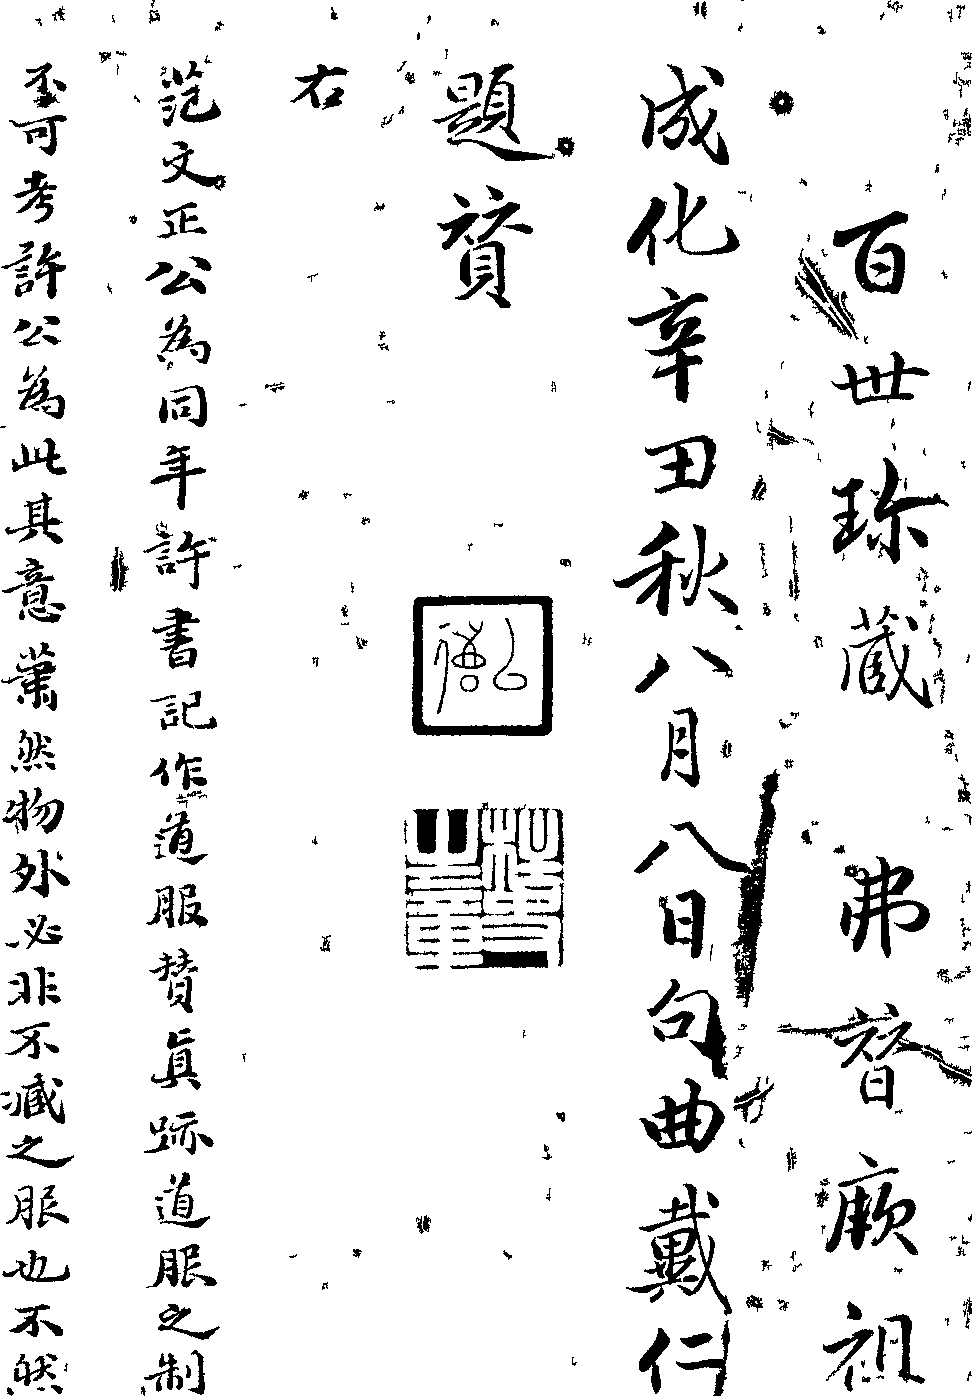 百世珎藏 弗替厥祖
成化辛丑秋八月八日句曲戴仁
題賛
右
范文正公為同年許書記作道服賛真跡道服之制
不可考許公為此其意蕭然物外必非不臧之服也不然